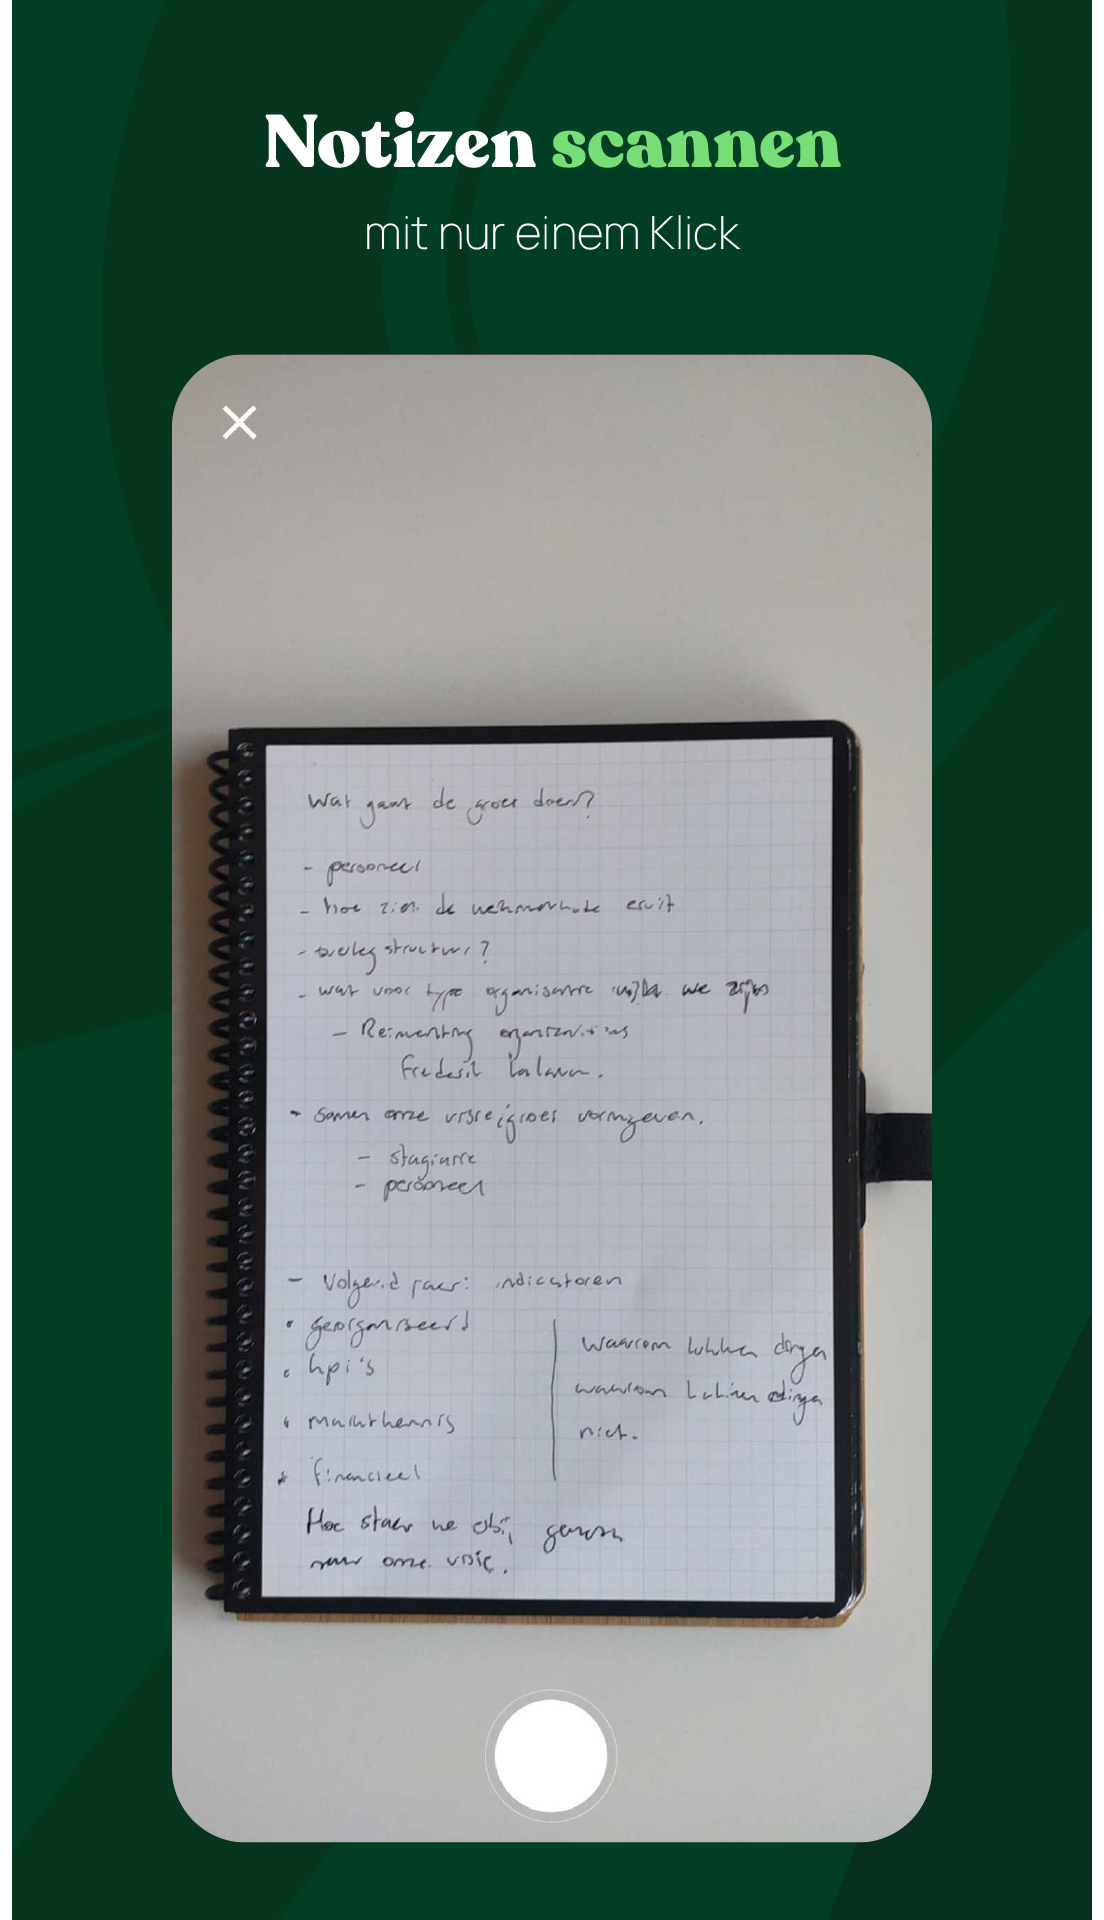 Notizen scannen
mit nur einem Klick
Wat gaat de groei doen?
- personeel
- Hoe de eruit
- overlegstructuur?
- wat voor type organisatie we zijn
- Reinventing organizations
Frederik
- samen onze vormgeven.
- stagiaire
- personeel
- Volgend jaar: indicatoren
• georganiseerd
• kpi's
• marktkennis
• financieel
waarom lukken dingen
waarom lukken dingen
niet.
Hoe staan we
naar onze visie.